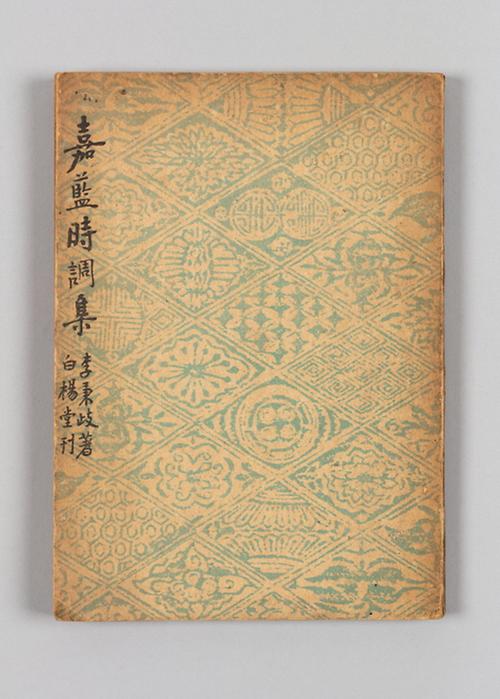 嘉藍時調集
李秉岐著
白楊堂刊